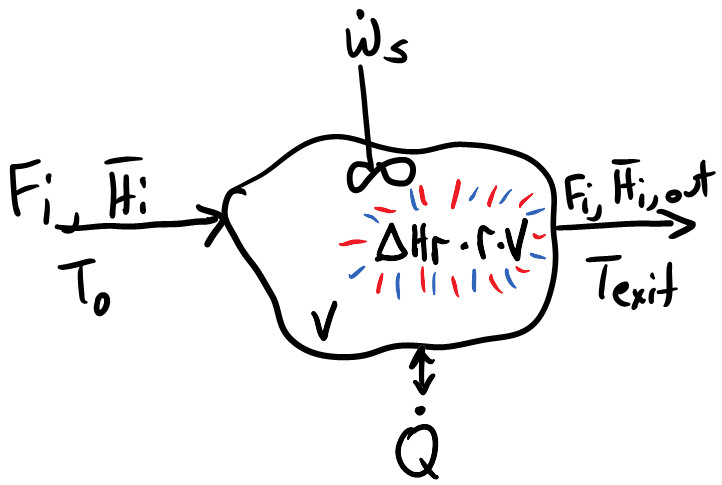 Ẇs
Fi, H̅i
T₀
ΔHr · r · V
V
Fi, H̅i, out
Texit
Q̇